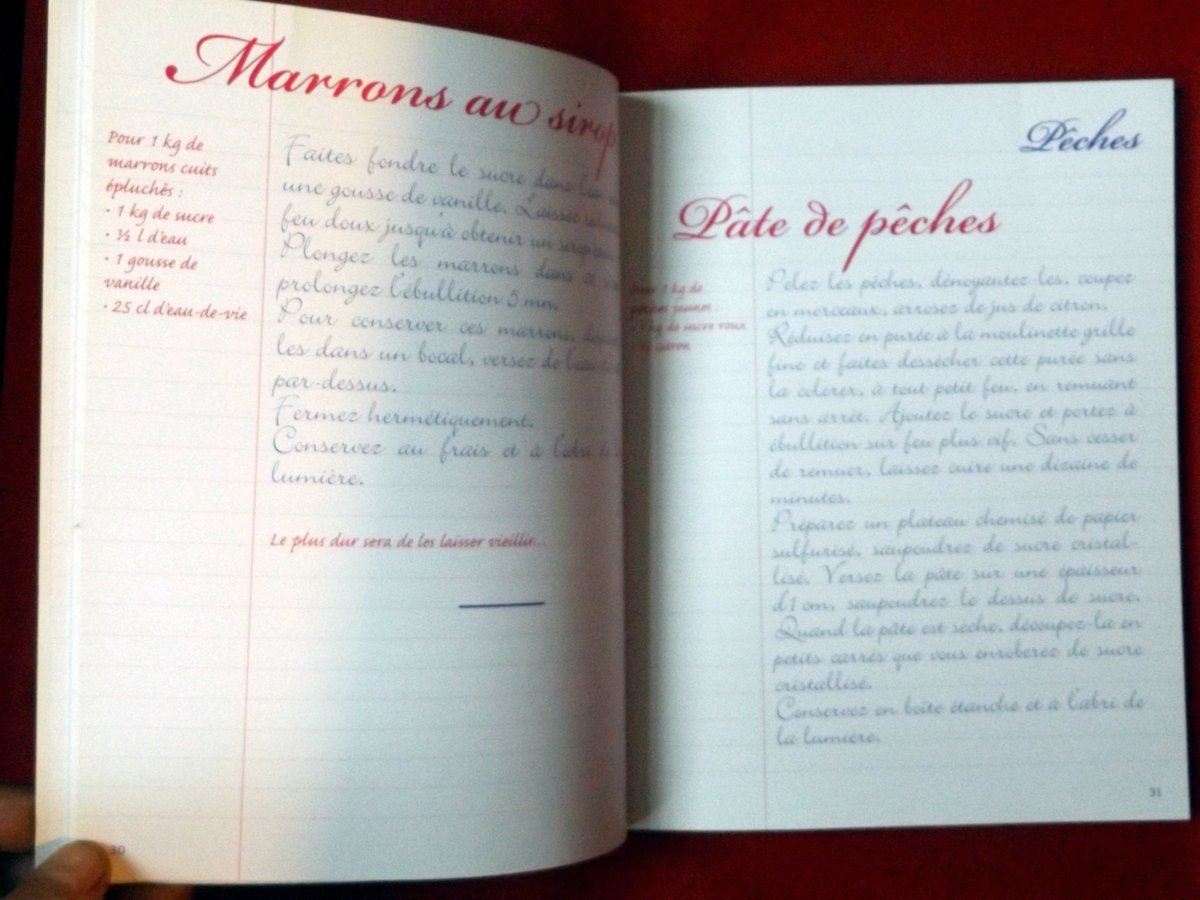 Marrons au sirop
Pour 1 kg de
marrons cuits
épluchés :
• 1 kg de sucre
• ½ l d'eau
• 1 gousse de
vanille
• 25 cl d'eau-de-vie
Faites fondre le sucre dans
une gousse de vanille. Laissez
feu doux jusqu'à obtenir un
Plongez les marrons dans
prolongez l'ébullition 5 mn.
Pour conserver ces marrons,
les dans un bocal, versez de
par-dessus.
Fermez hermétiquement.
Conservez au frais et à l'abri
lumière.
Le plus dur sera de les laisser vieillir...
30
Pêches
Pâte de pêches
Pour 1 kg de
pêches jaunes :
1 kg de sucre roux
citron
Pelez les pêches, dénoyautez-les, coupez
en morceaux, arrosez de jus de citron.
Réduisez en purée à la moulinette grille
fine et faites dessécher cette purée sans
la colorer, à tout petit feu, en remuant
sans arrêt. Ajoutez le sucre et portez à
ébullition sur feu plus vif. Sans cesser
de remuer, laissez cuire une dizaine de
minutes.
Préparez un plateau chemisé de papier
sulfurisé, saupoudrez de sucre cristal-
lisé. Versez la pâte sur une épaisseur
d'1 cm, saupoudrez le dessus de sucre.
Quand la pâte est sèche, découpez-la en
petits carrés que vous enroberez de sucre
cristallisé.
Conservez en boîte étanche et à l'abri de
la lumière.
31